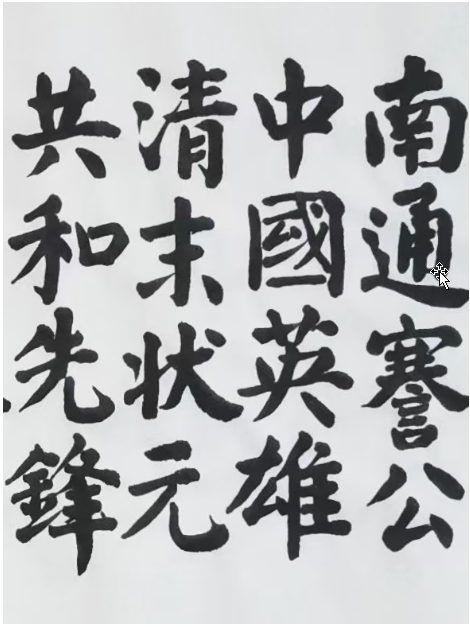 南通謇公
中國英雄
清末状元
共和先鋒